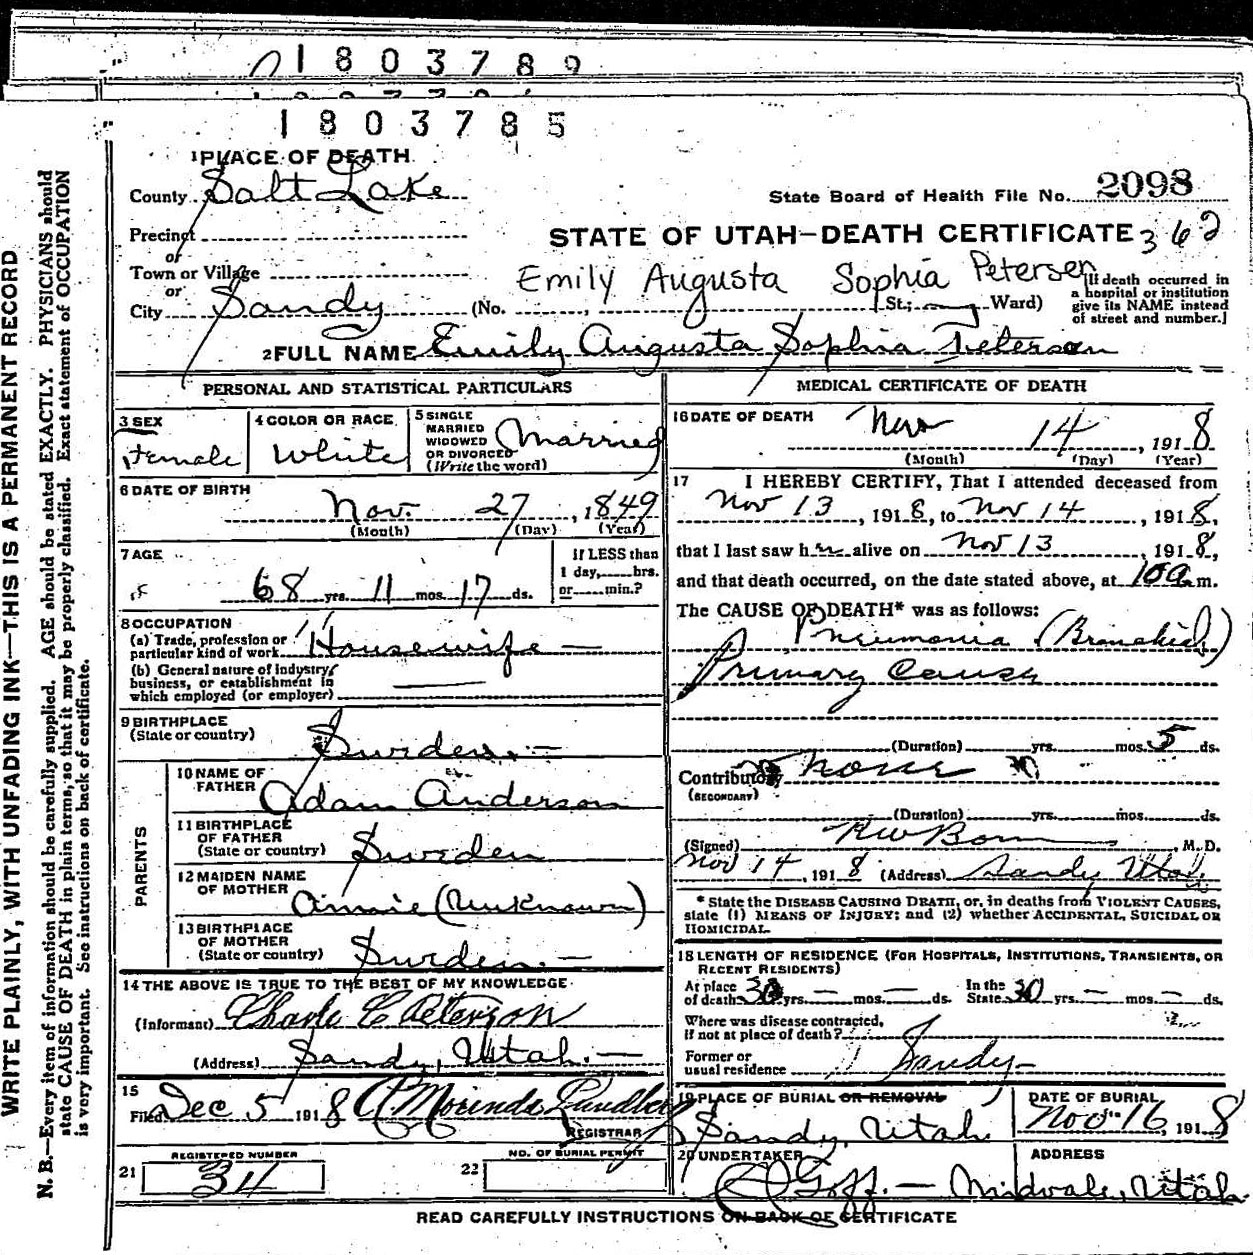 1803789
1803785
WRITE PLAINLY, WITH UNFADING INK—THIS IS A PERMANENT RECORD
N. B.—Every item of information should be carefully supplied. AGE should be stated EXACTLY. PHYSICIANS should
state CAUSE OF DEATH in plain terms, so that it may be properly classified. Exact statement of OCCUPATION
is very important. See instructions on back of certificate.
1 PLACE OF DEATH
County Salt Lake
State Board of Health File No. 2098
Precinct
or
STATE OF UTAH-DEATH CERTIFICATE 362
Town or Village
or
Emily Augusta Sophia Petersen
City Sandy (No. St.; Ward)
[If death occurred in
a hospital or institution
give its NAME instead
of street and number.]
2 FULL NAME Emily Augusta Sophia Peterson
PERSONAL AND STATISTICAL PARTICULARS
3 SEX
Female
4 COLOR OR RACE
White
5 SINGLE
MARRIED
WIDOWED
OR DIVORCED
(Write the word)
Married
6 DATE OF BIRTH
Nov. 27, 1849
(Month) (Day) (Year)
7 AGE
68 yrs. 11 mos. 17 ds.
If LESS than
1 day,......hrs.
or......min.?
8 OCCUPATION
(a) Trade, profession or
particular kind of work Housewife —
(b) General nature of industry,
business, or establishment in
which employed (or employer)
9 BIRTHPLACE
(State or country) Sweden. —
PARENTS
10 NAME OF
FATHER Adam Anderson
11 BIRTHPLACE
OF FATHER
(State or country) Sweden
12 MAIDEN NAME
OF MOTHER Annie (Unknown)
13 BIRTHPLACE
OF MOTHER
(State or country) Sweden. —
14 THE ABOVE IS TRUE TO THE BEST OF MY KNOWLEDGE
(Informant) Charle C Peterson
(Address) Sandy, Utah. —
15
Filed Dec 5 1918
REGISTRAR
REGISTERED NUMBER
21 34
NO. OF BURIAL PERMIT
22
MEDICAL CERTIFICATE OF DEATH
16 DATE OF DEATH
Nov 14, 1918
(Month) (Day) (Year)
17 I HEREBY CERTIFY, That I attended deceased from
Nov 13, 1918, to Nov 14, 1918,
that I last saw her alive on Nov 13, 1918,
and that death occurred, on the date stated above, at 10 a.m.
The CAUSE OF DEATH* was as follows:
Pneumonia (Bronchial)
Primary Cause
(Duration) yrs. mos. 5 ds.
Contributory None
(SECONDARY)
(Duration) yrs. mos. ds.
(Signed) , M. D.
Nov 14, 1918 (Address) Sandy Utah
* State the DISEASE CAUSING DEATH, or, in deaths from VIOLENT CAUSES,
state (1) MEANS OF INJURY; and (2) whether ACCIDENTAL, SUICIDAL OR
HOMICIDAL.
18 LENGTH OF RESIDENCE (FOR HOSPITALS, INSTITUTIONS, TRANSIENTS, OR
RECENT RESIDENTS)
At place
of death 30 yrs. — mos. — ds.
In the
State 30 yrs. — mos. — ds.
Where was disease contracted,
if not at place of death?
Former or
usual residence Sandy —
19 PLACE OF BURIAL OR REMOVAL
Sandy, Utah.
DATE OF BURIAL
Nov 16, 1918
20 UNDERTAKER
Goff. —
ADDRESS
Midvale, Utah.
READ CAREFULLY INSTRUCTIONS ON BACK OF CERTIFICATE